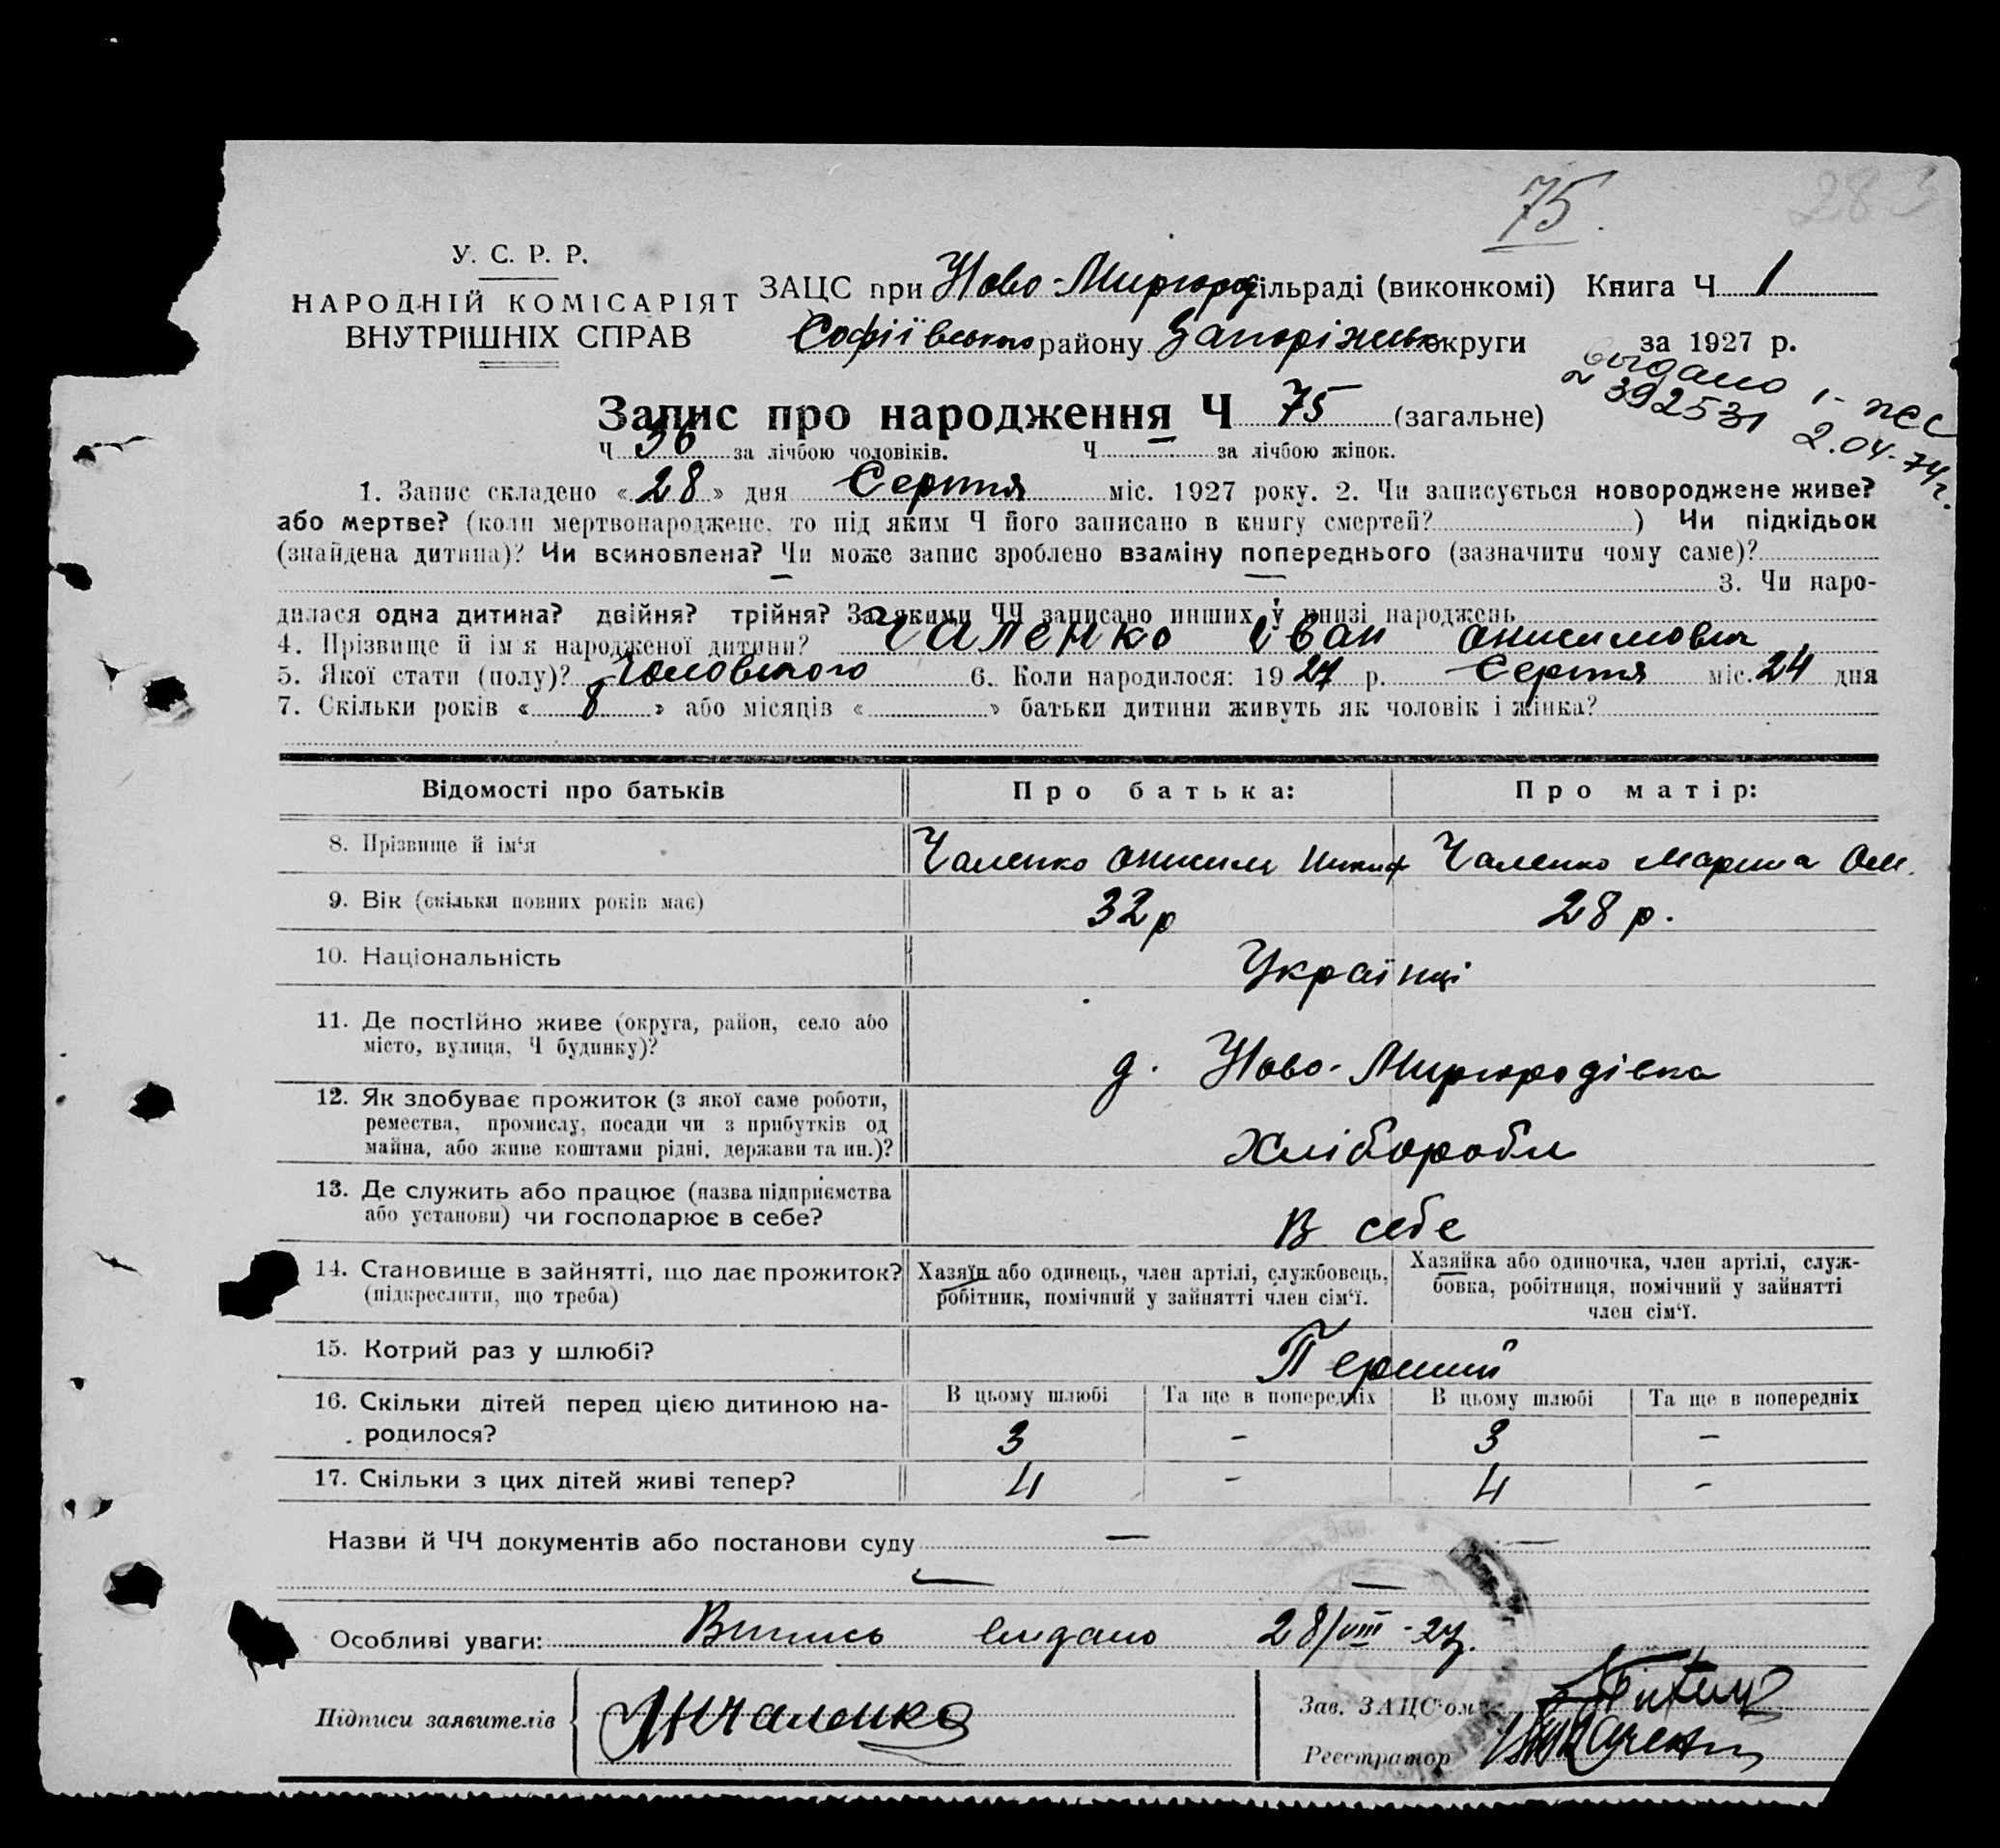 75.
283
У. С. Р. Р.
НАРОДНІЙ КОМІСАРІЯТ
ВНУТРІШНІХ СПРАВ
ЗАЦС при Ново-Миргород сільраді (виконкомі) Книга Ч 1
Софіївського району Запоріжськ округи за 1927 р.
выдано
№ 392531
2.04.74г.
Запис про народження Ч 75 (загальне)
Ч 36 за лічбою чоловіків. Ч — за лічбою жінок.
1. Запис складено « 28 » дня Серпня міс. 1927 року. 2. Чи записується новороджене живе?
або мертве? (коли мертвонароджене, то під яким Ч його записано в книгу смертей? ) Чи підкідьок
(знайдена дитина)? Чи всиновлена? Чи може запис зроблено взаміну попереднього (зазначити чому саме)?
— — 3. Чи наро-
дилася одна дитина? двійня? трійня? За якими ЧЧ записано инших у книзі народжень
4. Прізвище й ім'я народженої дитини? Чаленко Іван Анисимович
5. Якої стати (полу)? Чоловічого 6. Коли народилося: 1927 р. Серпня міс. 24 дня
7. Скільки років « 8 » або місяців « » батьки дитини живуть як чоловік і жінка?
Відомості про батьків Про батька: Про матір:
8. Прізвище й ім'я Чаленко Анисим Никиф Чаленко Марина Ом.
9. Вік (скільки повних років має) 32 р 28 р.
10. Національність Українці
11. Де постійно живе (округа, район, село або
місто, вулиця, Ч будинку)? д. Ново-Миргородівка
12. Як здобуває прожиток (з якої саме роботи,
ремества, промислу, посади чи з прибутків од
майна, або живе коштами рідні, держави та ин.)? Хлібороби
13. Де служить або працює (назва підприємства
або установи) чи господарює в себе? В себе
14. Становище в зайнятті, що дає прожиток?
(підкреслити, що треба)
Хазяїн або одинець, член артілі, службовець,
робітник, помічний у зайнятті член сім'ї.
Хазяйка або одиночка, член артілі, служ-
бовка, робітниця, помічний у зайнятті
член сім'ї.
15. Котрий раз у шлюбі? Перший
16. Скільки дітей перед цією дитиною на-
родилося?
В цьому шлюбі Та ще в попередніх В цьому шлюбі Та ще в попередніх
3 - 3 -
17. Скільки з цих дітей живі тепер? 4 - 4 -
Назви й ЧЧ документів або постанови суду — —
Особливі уваги: Випись видано 28/VIII-27.
Підписи заявителів Чаленко
Зав. ЗАЦС'ом
Реєстратор